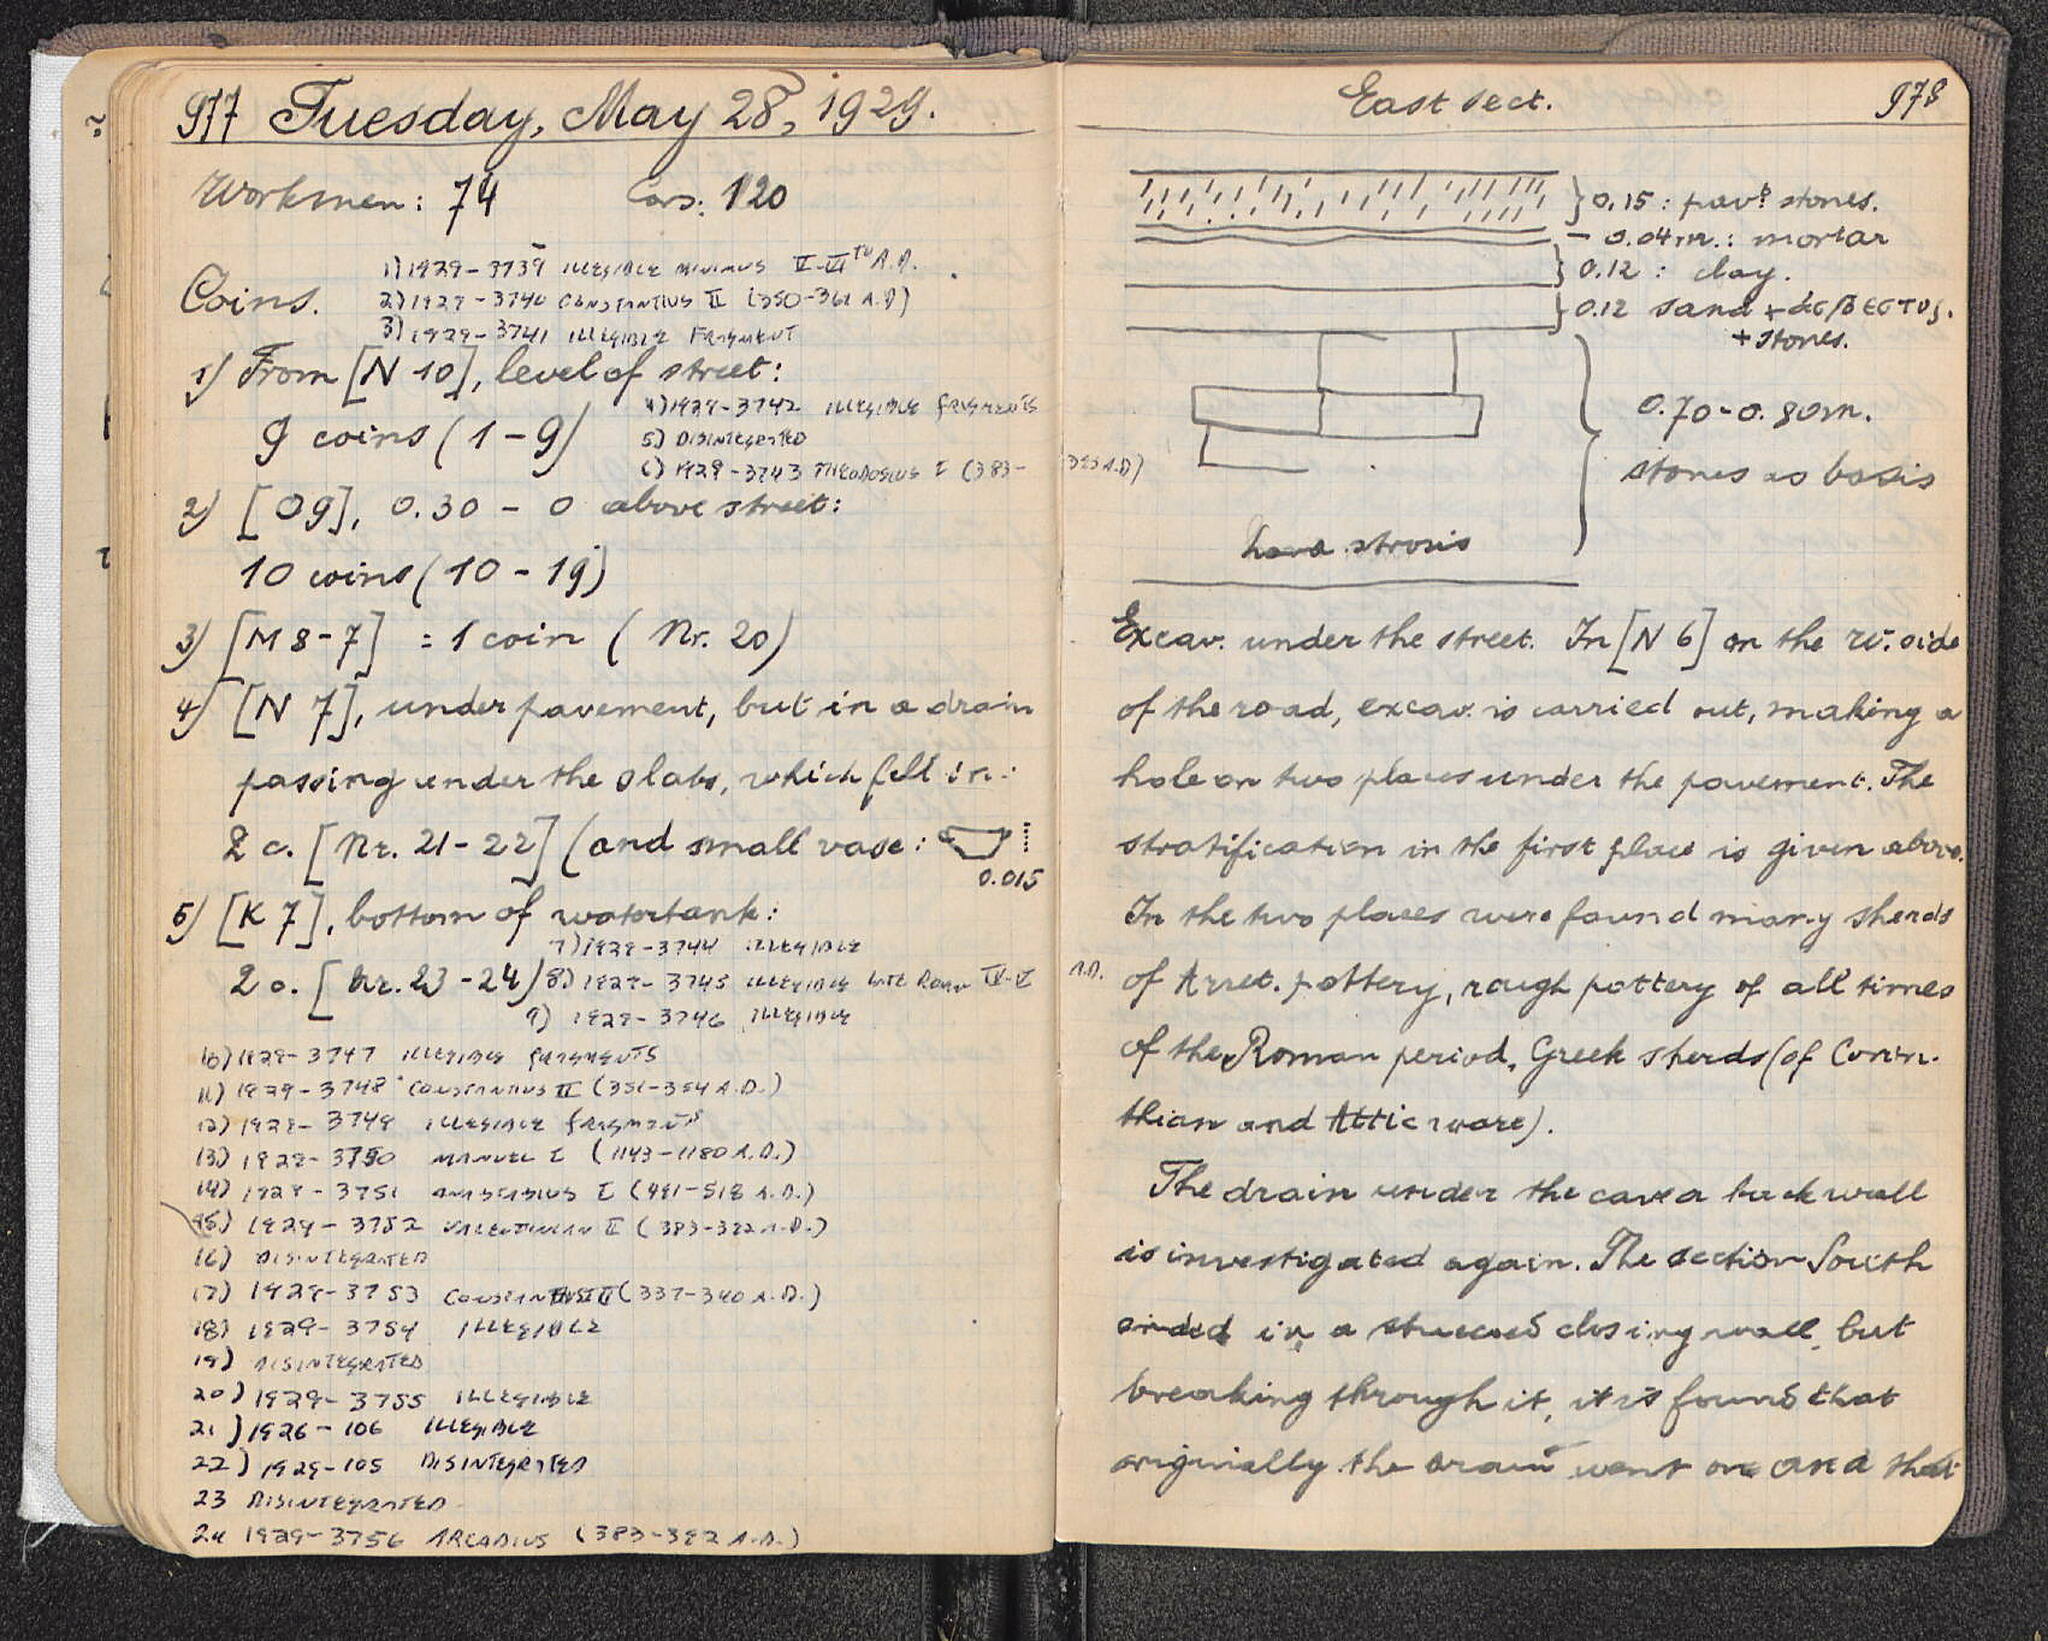 977 Tuesday, May 28, 1929.
Workmen: 74 Cars: 120
1) 1929-3739 ILLEGIBLE MINIMUS V-VI TH A.D.
Coins. 2) 1929-3740 CONSTANTIUS II (350-361 A.D)
3) 1929-3741 ILLEGIBLE FRAGMENT
1) From [N 10], level of street:
9 coins (1-9) 4) 1929-3742 ILLEGIBLE FRAGMENTS
5) DISINTEGRATED
6) 1929-3743 THEODOSIUS I (383-395 A.D)
2) [O9], 0.30 - 0 above street:
10 coins (10-19)
3) [M 8-7] = 1 coin (Nr. 20)
4) [N 7], under pavement, but in a drain
passing under the slabs, which fell in:
2 c. [Nr. 21-22] (and small vase:
0.015
5) [K 7], bottom of watertank:
7) 1929-3744 ILLEGIBLE
2 c. [Nr. 23-24) 8) 1929-3745 ILLEGIBLE LATE ROMAN IV-V A.D.
9) 1929-3746 ILLEGIBLE
10) 1929-3747 ILLEGIBLE FRAGMENTS
11) 1929-3748 CONSTANTIUS II (351-354 A.D.)
12) 1929-3749 ILLEGIBLE FRAGMENTS
13) 1929-3750 MANUEL I (1143-1180 A.D.)
14) 1929-3751 ANASTASIUS I (491-518 A.D.)
15) 1929-3752 VALENTINIAN II (383-392 A.D.)
16) DISINTEGRATED
17) 1929-3753 (337-340 A.D.)
18) 1929-3754 ILLEGIBLE
19) DISINTEGRATED
20) 1929-3755 ILLEGIBLE
21) 1926-106 ILLEGIBLE
22) 1929-105 DISINTEGRATED
23 DISINTEGRATED
24 1929-3756 ARCADIUS (383-392 A.D.)
East sect. 978
0.15 : pav. stones.
- 0.04 m.: mortar
0.12 : clay.
0.12 sand +
+ stones.
0.70-0.80m.
stones as basis
strosis
Excav. under the street. In [N 6] on the w. side
of the road, excav. is carried out, making a
hole on two places under the pavement. The
stratification in the first place is given above.
In the two places were found many sherds
of Arret. pottery, rough pottery of all times
of the Roman period, Greek sherds (of Corin-
thian and Attic ware).
The drain under the cavea back wall
is investigated again. The section South
ended in a closing wall, but
breaking through it, it is found that
originally the drain went on and that